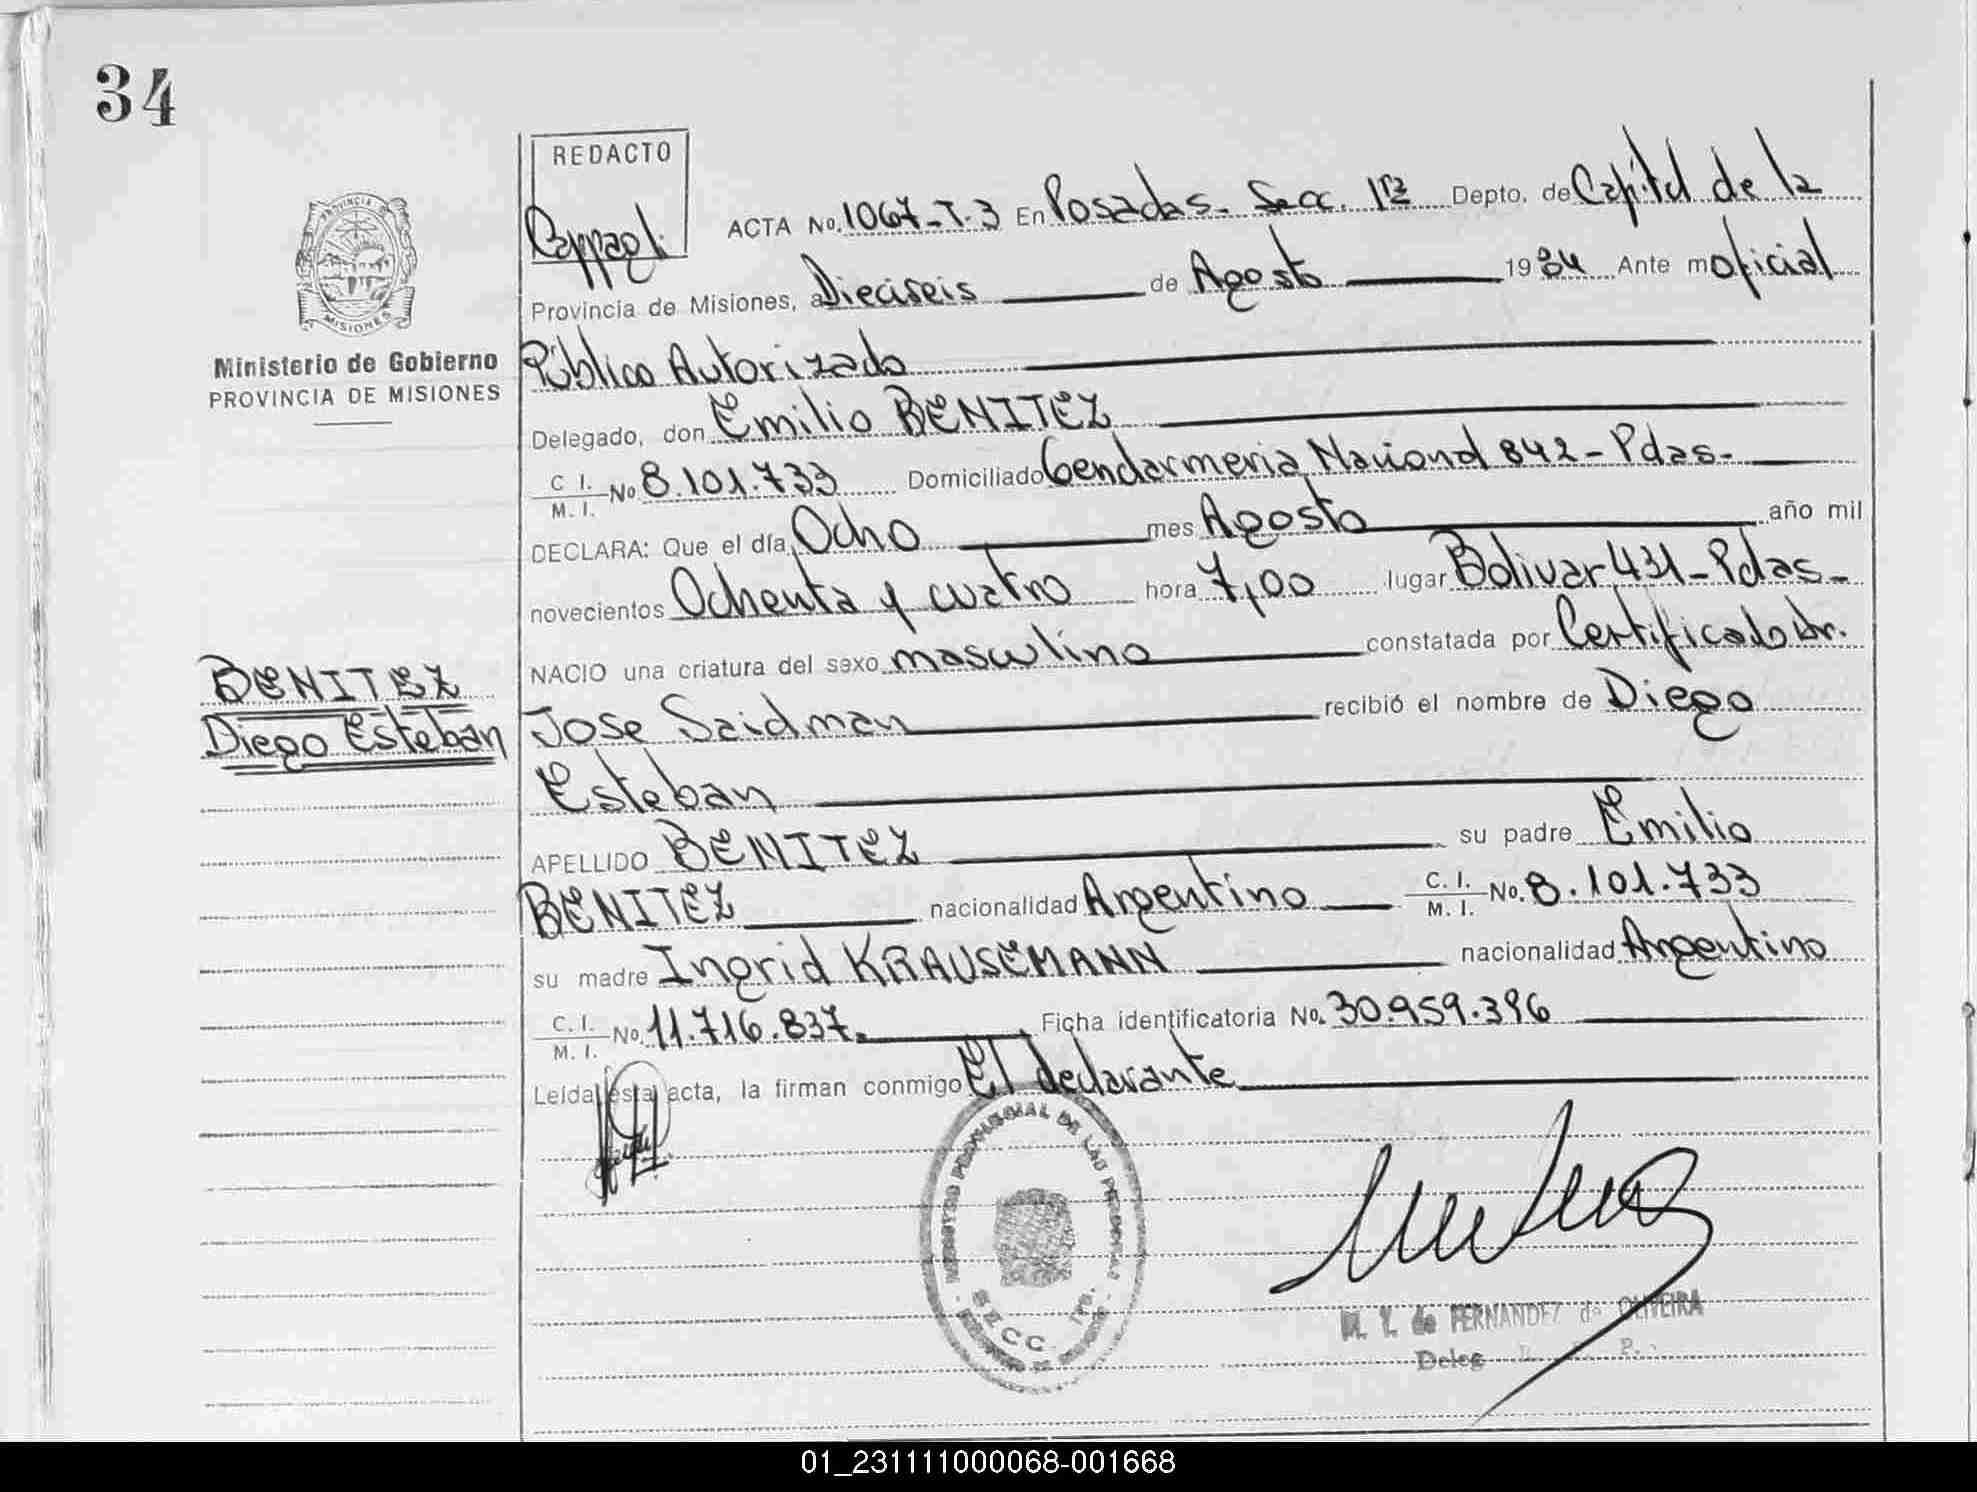 34
REDACTO
PROVINCIA DE
MISIONES
Ministerio de Gobierno
PROVINCIA DE MISIONES
BENITEZ
Diego Esteban
ACTA No. 1067-T.3 En Posadas - Secc. 1ra Depto. de Capital de la
Provincia de Misiones, a Dieciseis de Agosto 1984 Ante m oficial
Público Autorizado
Delegado, don Emilio BENITEZ
C. I. M. I. No 8.101.733 Domiciliado Gendarmeria Nacional 842 - Pdas-
DECLARA: Que el día Ocho mes Agosto año mil
novecientos Ochenta y cuatro hora 7,00 lugar Bolivar 431 - Pdas -
NACIO una criatura del sexo masculino constatada por Certificado Dr.
Jose Saidman recibió el nombre de Diego
Esteban
APELLIDO BENITEZ su padre Emilio
BENITEZ nacionalidad Argentino C. I. M. I. No. 8.101.733
su madre Ingrid KRAUSEMANN nacionalidad Argentino
C. I. M. I. No 11.716.837. Ficha identificatoria No. 30.959.396
Leída esta acta, la firman conmigo El declarante
DE LAS
SECC. 1ra.
M. Y. de FERNANDEZ de OLIVEIRA
Deleg
01_231111000068-001668